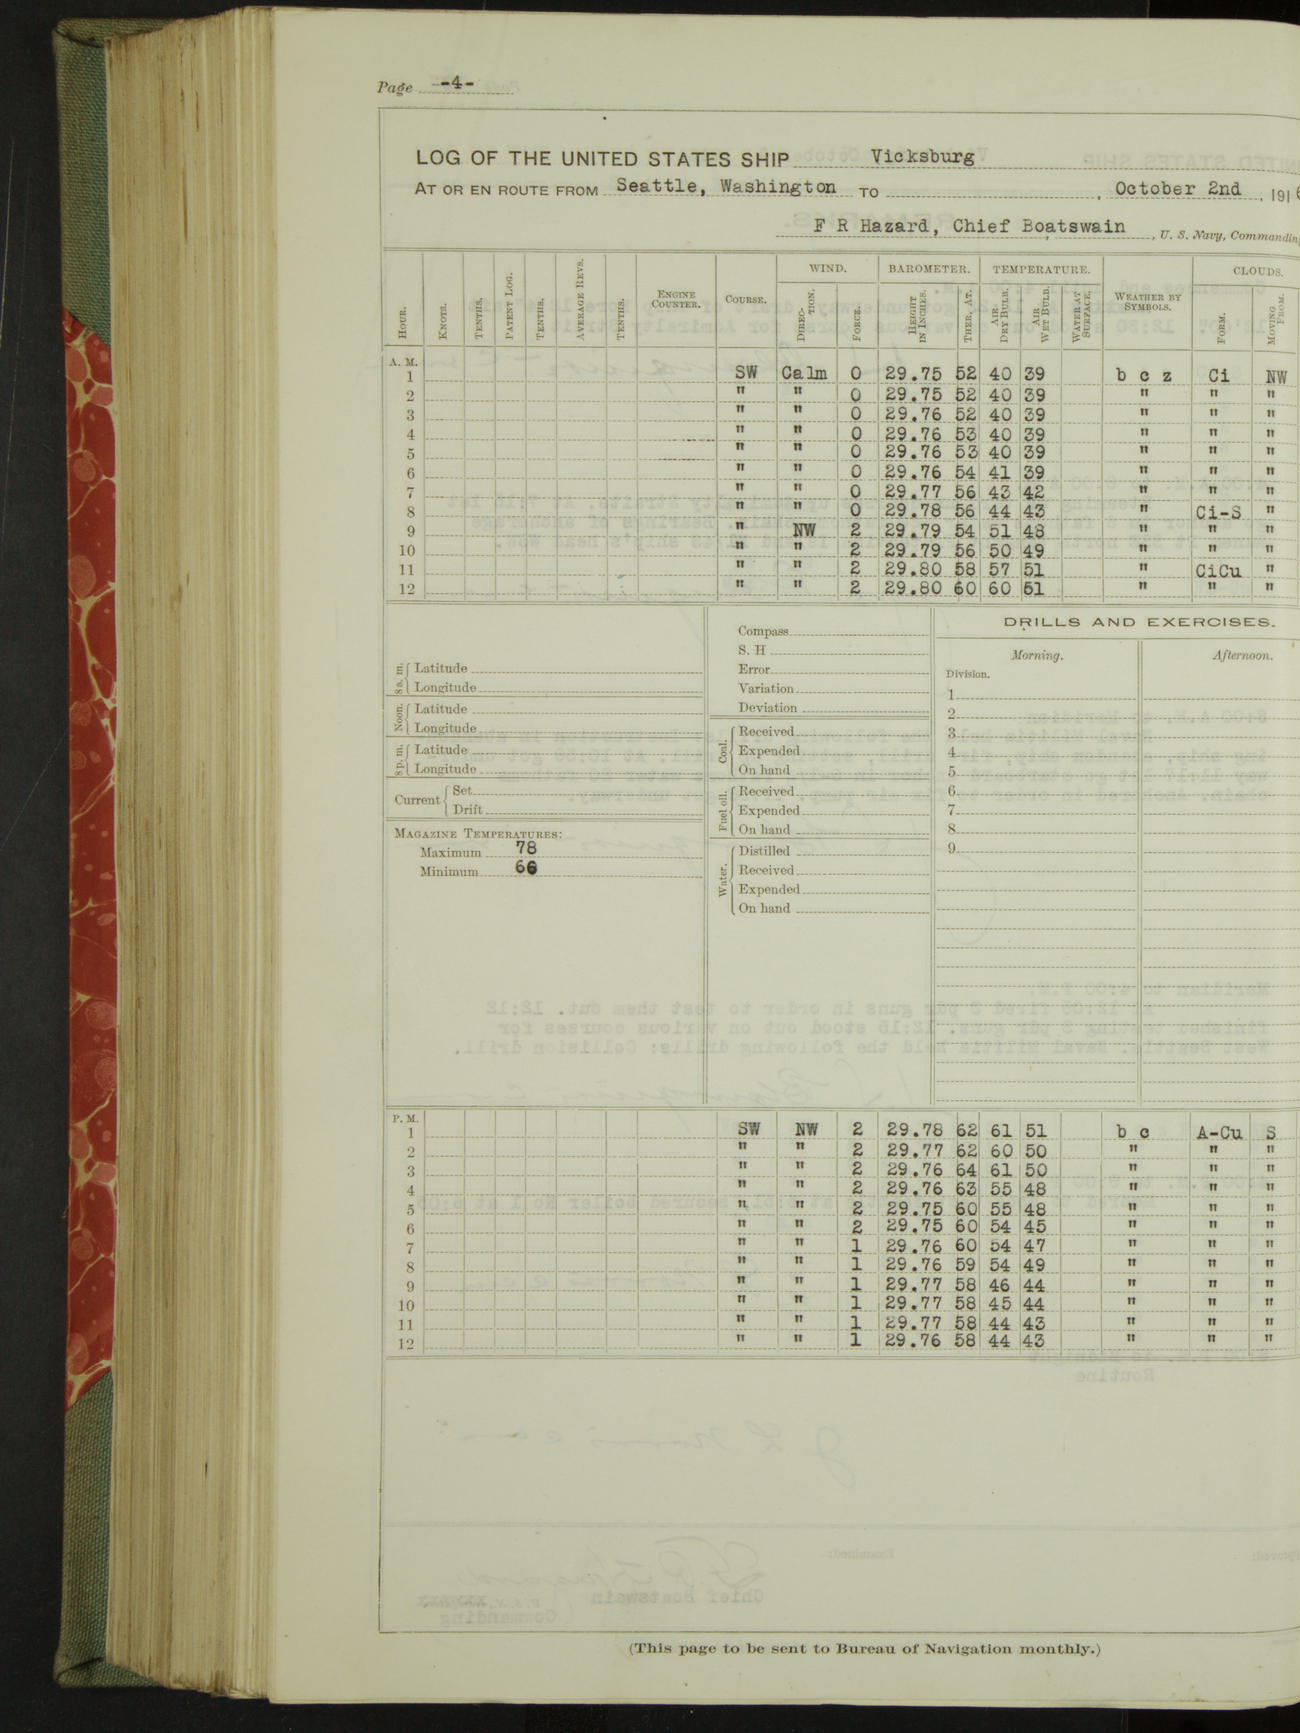 Page -4-
LOG OF THE UNITED STATES SHIP Vicksburg
AT OR EN ROUTE FROM Seattle, Washington TO , October 2nd , 1916
F R Hazard, Chief Boatswain , U. S. Navy, Commandin
HOUR. KNOTS. TENTHS. PATENT LOG. TENTHS. AVERAGE REVS. TENTHS. ENGINE COUNTER. COURSE. WIND. DIREC-TION. FORCE. BAROMETER. HEIGHT IN INCHES. THER. AT. TEMPERATURE. AIR DRY BULB. AIR WET BULB. WATER AT SURFACE. WEATHER BY SYMBOLS. CLOUDS. FORM. MOVING FROM.
A. M.
1 SW Calm 0 29.75 52 40 39 b c z Ci NW
2 " " 0 29.75 52 40 39 " " "
3 " " 0 29.76 52 40 39 " " "
4 " " 0 29.76 53 40 39 " " "
5 " " 0 29.76 53 40 39 " " "
6 " " 0 29.76 54 41 39 " " "
7 " " 0 29.77 56 43 42 " " "
8 " " 0 29.78 56 44 43 " Ci-S "
9 " NW 2 29.79 54 51 48 " " "
10 " " 2 29.79 56 50 49 " " "
11 " " 2 29.80 58 57 51 " CiCu "
12 " " 2 29.80 60 60 51 " " "
8 a. m. Latitude
Longitude
Noon. Latitude
Longitude
8 p. m. Latitude
Longitude
Current Set
Drift
MAGAZINE TEMPERATURES:
Maximum 78
Minimum 66
Compass
S. H
Error
Variation
Deviation
Coal. Received
Expended
On hand
Fuel oil. Received
Expended
On hand
Water. Distilled
Received
Expended
On hand
DRILLS AND EXERCISES.
Morning. Afternoon.
Division.
1
2
3
4
5
6
7
8
9
P. M.
1 SW NW 2 29.78 62 61 51 b c A-Cu S
2 " " 2 29.77 62 60 50 " " "
3 " " 2 29.76 64 61 50 " " "
4 " " 2 29.76 63 55 48 " " "
5 " " 2 29.75 60 55 48 " " "
6 " " 2 29.75 60 54 45 " " "
7 " " 1 29.76 60 54 47 " " "
8 " " 1 29.76 59 54 49 " " "
9 " " 1 29.77 58 46 44 " " "
10 " " 1 29.77 58 45 44 " " "
11 " " 1 29.77 58 44 43 " " "
12 " " 1 29.76 58 44 43 " " "
(This page to be sent to Bureau of Navigation monthly.)